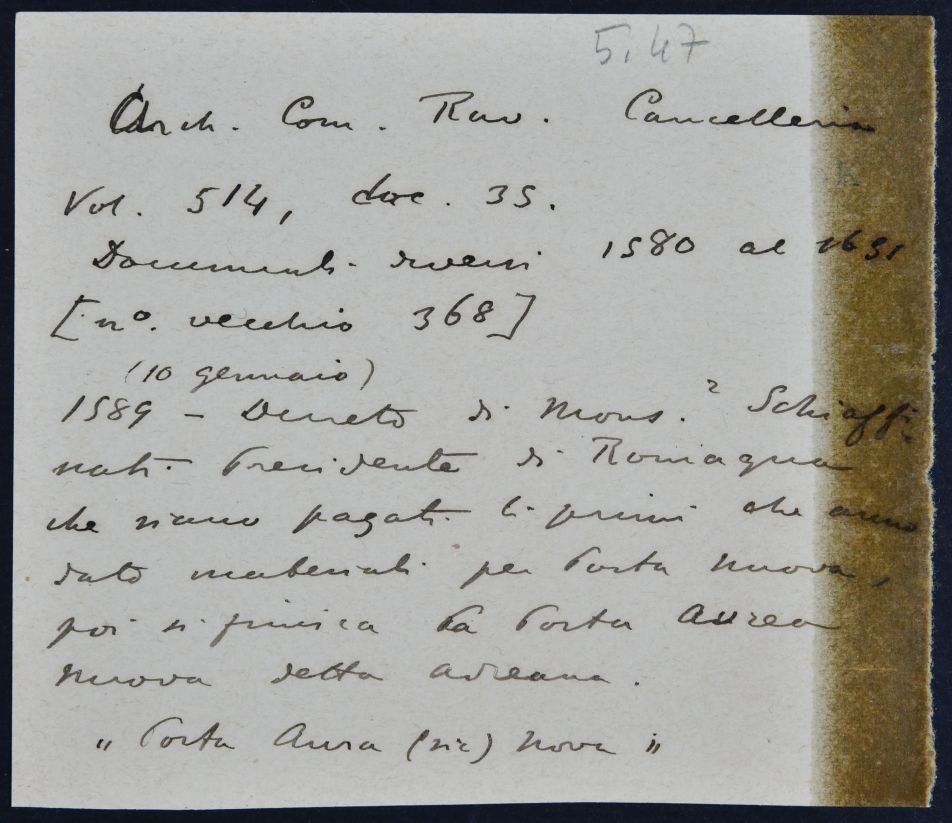 5.47
Arch. Com. Rav. Cancelleria
K
Vol. 514, doc. 35.
Documenti diversi 1580 al 1651
[n°. vecchio 368]
(10 gennaio)
1589 - Decreto di Mons.? Schiaffi-
nati Presidente di Romagna
che siano pagati li primi che anno
dato materiali per Porta Nuova,
poi si finisca la Porta Aurea
nuova detta Adreana.
" Porta Aura (sic) nova "